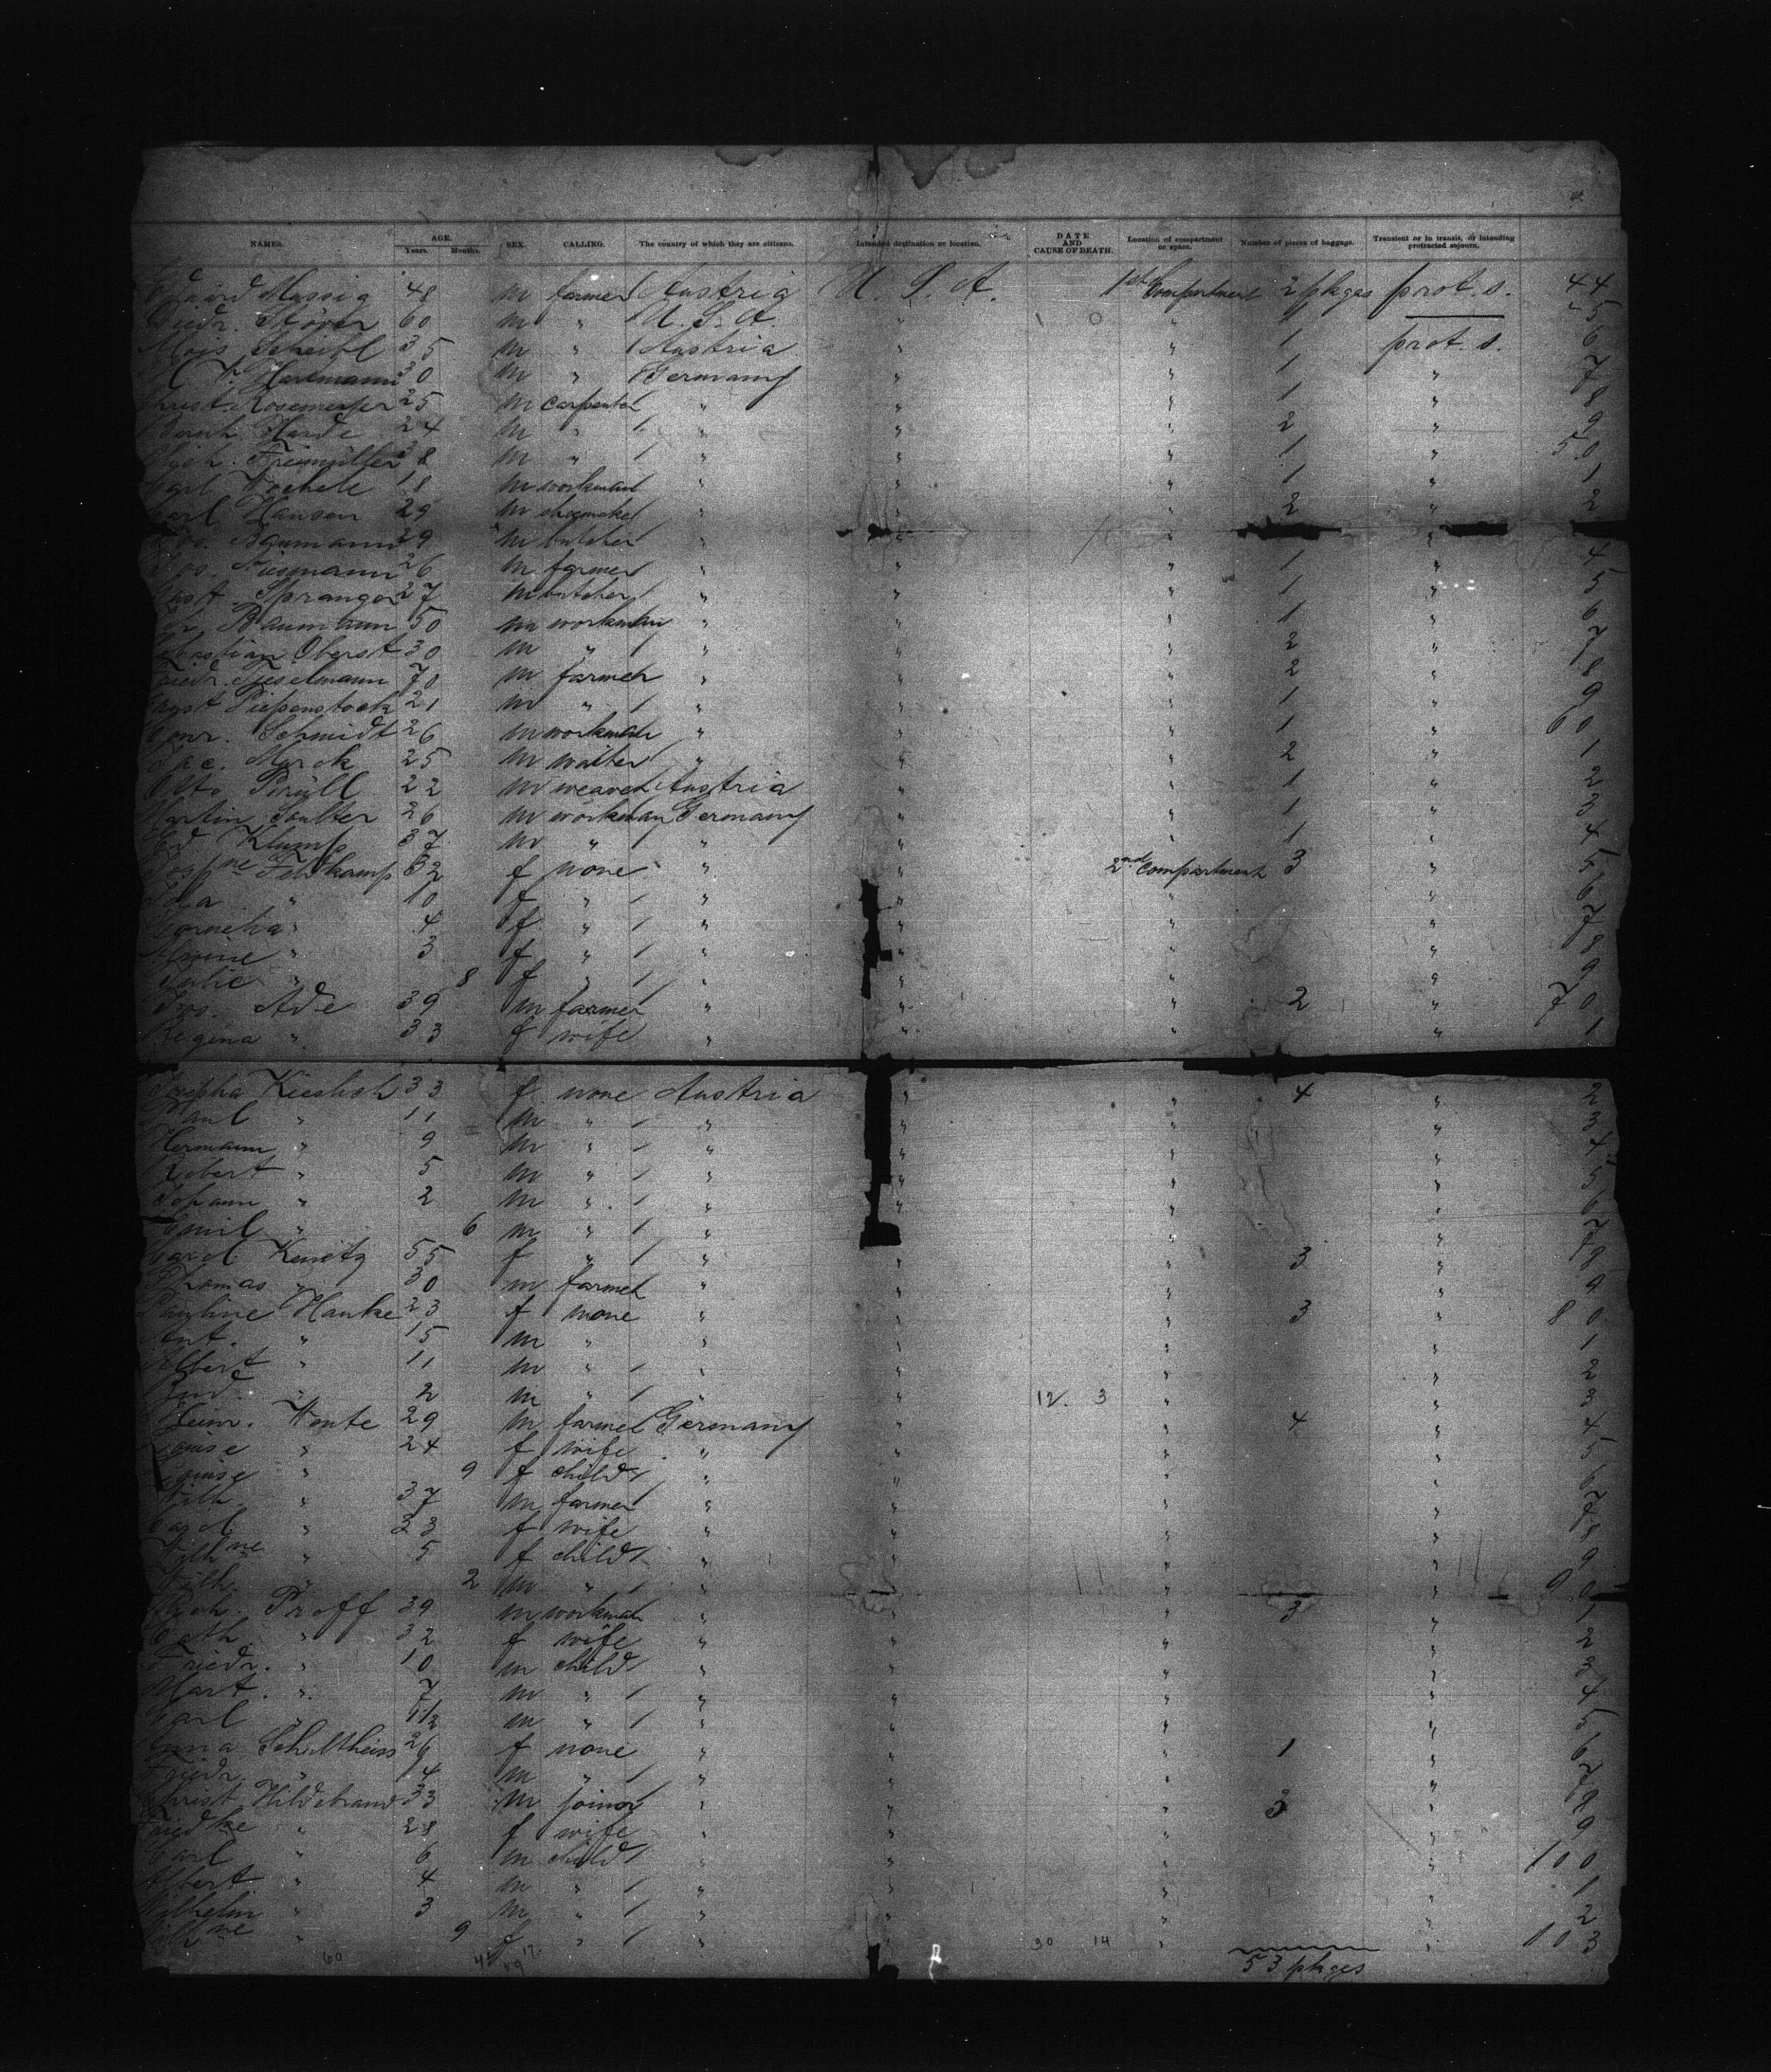 NAMES. AGE. Years. Months. SEX. CALLING. The country of which they are citizens. Intended destination or location. DATE AND CAUSE OF DEATH. Location of compartment or space. Number of pieces of baggage. Transient or in transit, or intending protracted sojourn.
48 m farmer Austria U. S. A. 1st Compartment 2 pkges prot. s. 44
Friedr. Stöver 60 m " U. S. A. " " 1 5
Alois Scheibl 35 m " Austria " " 1 prot. s. 6
Hartmann 30 m " Germany " " 1 " 7
Christ. 25 m carpenter " " " 1 " 8
Bernh. Harde 24 m " " " " 2 " 9
38 m " " " " 1 " 50
Carl 18 m workman " " " 1 " 1
Carl Hansen 29 m shoemaker " " " 2 " 2
Baumann 29 m butcher " " " "
Jos. Niesmann 26 m farmer " " " 1 " 4
Spranger 27 m butcher " " " 1 " 5
Baumann 50 m workman " " " 1 " 6
Sebastian Oberst 30 m " " " " 2 " 7
Friedr. Tieselmann 70 m farmer " " " 2 " 8
August Piepenstock 21 m " " " " 1 " 9
Conr. Schmidt 26 m workman " " " 1 " 60
Jac. Marck 25 m waiter " " " 2 " 1
Otto Prüll 22 m weaver Austria " " 1 " 2
Martin Soulter 26 m workman Germany " " 1 " 3
Ed Klump 37 m " " " " 1 " 4
Josphne Feldkamp 32 f none " " 2nd Compartment 3 " 5
" 10 f " " " " " 6
Cornelia " 4 f " " " " " 7
" 3 f " " " " " 8
Julie " 8 f " " " " " 9
Jos. Ade 39 m farmer " " " 2 " 70
Regina " 33 f wife " " " " 1
Josepha 33 f none Austria " " 4 " 2
Paul " 11 m " " " " " 3
Hermann " 9 m " " " " " 4
Robert " 5 m " " " " " 5
Johann " 2 m " " " " " 6
Emil " 6 m " " " " " 7
Carol. 55 f " " " " 3 " 8
Thomas " 30 m farmer " " " " 9
Pauline Hanke 23 f none " " " 3 " 80
Ant. " 15 m " " " " " 1
Albert " 11 m " " " " " 2
" 2 m " " " 12 3 " " 3
Heinr. Wente 29 m farmer Germany " " 4 " 4
Louise " 24 f wife " " " " 5
Louise " 9 f child " " " " 6
Wilh. " 37 m farmer " " " " 7
Carol. " 33 f wife " " " " 8
Wilhne " 5 f child " " " " 9
Wilh. " 2 m " " " " " 90
Mich. Proff 39 m workman " " " 3 " 1
Cath. " 32 f wife " " " " 2
Friedr. " 10 m child " " " " 3
Mart. " 7 m " " " " " 4
Carl " 1 1/2 m " " " " " 5
Anna Schultheiss 26 f none " " " 1 " 6
Friedr. " m " " " " " 7
Christ. Hildebrand 33 m joiner " " " 3 " 8
Friedke " 28 f wife " " " " 9
Carl " 6 m child " " " " 100
Albert " 4 m " " " " " 1
Wilhelm " 3 m " " " " " 2
Wilhne " 9 f " " " " " 103
60 17. 30 14 53 pkges